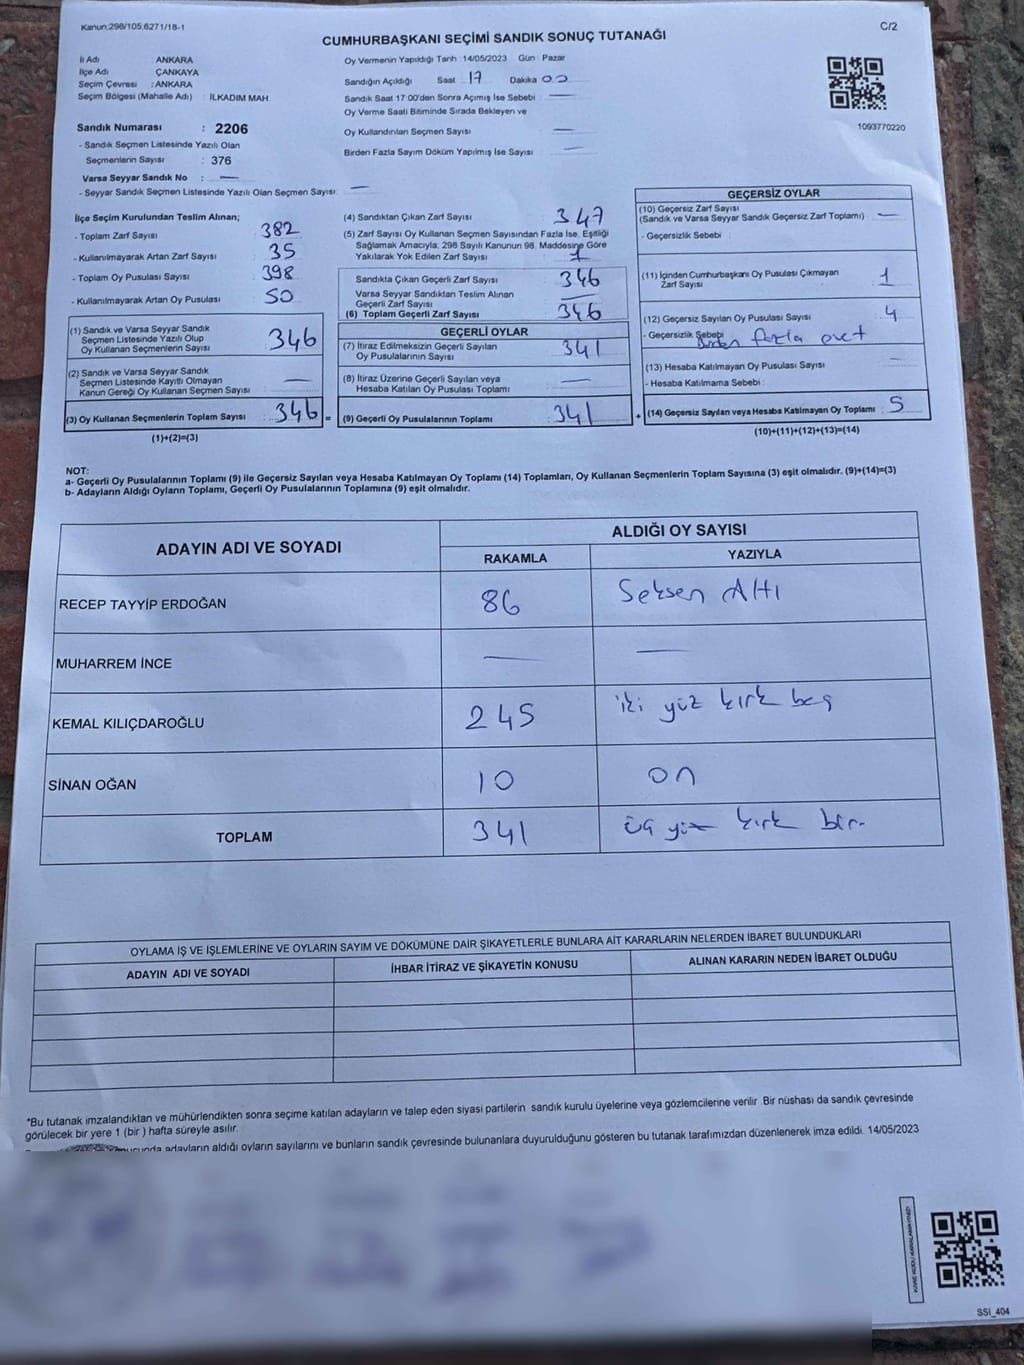 Kanun:298/105,6271/18-1
C/2
CUMHURBAŞKANI SEÇİMİ SANDIK SONUÇ TUTANAĞI
İl Adı ANKARA
İlçe Adı ÇANKAYA
Seçim Çevresi : ANKARA
Seçim Bölgesi (Mahalle Adı) : İLKADIM MAH.
Sandık Numarası : 2206
- Sandık Seçmen Listesinde Yazılı Olan
Seçmenlerin Sayısı : 376
Varsa Seyyar Sandık No : —
- Seyyar Sandık Seçmen Listesinde Yazılı Olan Seçmen Sayısı: —
Oy Vermenin Yapıldığı Tarih 14/05/2023 Gün : Pazar
Sandığın Açıldığı Saat 17 Dakika 00
Sandık Saat 17:00'den Sonra Açımış İse Sebebi —
Oy Verme Saati Bitiminde Sırada Bekleyen ve
Oy Kullandırılan Seçmen Sayısı —
Birden Fazla Sayım Döküm Yapılmış İse Sayısı —
1093770220
İlçe Seçim Kurulundan Teslim Alınan;
- Toplam Zarf Sayısı 382
- Kullanılmayarak Artan Zarf Sayısı 35
- Toplam Oy Pusulası Sayısı 398
- Kullanılmayarak Artan Oy Pusulası 50
(1) Sandık ve Varsa Seyyar Sandık
Seçmen Listesinde Yazılı Olup
Oy Kullanan Seçmenlerin Sayısı 346
(2) Sandık ve Varsa Seyyar Sandık
Seçmen Listesinde Kayıtlı Olmayan
Kanun Gereği Oy Kullanan Seçmen Sayısı —
(3) Oy Kullanan Seçmenlerin Toplam Sayısı 346 =
(1)+(2)=(3)
(4) Sandıktan Çıkan Zarf Sayısı 347
(5) Zarf Sayısı Oy Kullanan Seçmen Sayısından Fazla İse, Eşitliği
Sağlamak Amacıyla, 298 Sayılı Kanunun 98. Maddesine Göre
Yakılarak Yok Edilen Zarf Sayısı 1
Sandıkta Çıkan Geçerli Zarf Sayısı 346
Varsa Seyyar Sandıktan Teslim Alınan
Geçerli Zarf Sayısı —
(6) Toplam Geçerli Zarf Sayısı 346
GEÇERLİ OYLAR
(7) İtiraz Edilmeksizin Geçerli Sayılan
Oy Pusulalarının Sayısı 341
(8) İtiraz Üzerine Geçerli Sayılan veya
Hesaba Katılan Oy Pusulası Toplamı —
(9) Geçerli Oy Pusulalarının Toplamı 341 +
GEÇERSİZ OYLAR
(10) Geçersiz Zarf Sayısı
(Sandık ve Varsa Seyyar Sandık Geçersiz Zarf Toplamı) —
- Geçersizlik Sebebi :
(11) İçinden Cumhurbaşkanı Oy Pusulası Çıkmayan
Zarf Sayısı 1
(12) Geçersiz Sayılan Oy Pusulası Sayısı 4
- Geçersizlik Sebebi Birden fazla evet
(13) Hesaba Katılmayan Oy Pusulası Sayısı —
- Hesaba Katılmama Sebebi :
(14) Geçersiz Sayılan veya Hesaba Katılmayan Oy Toplamı 5
(10)+(11)+(12)+(13)=(14)
NOT:
a- Geçerli Oy Pusulalarının Toplamı (9) ile Geçersiz Sayılan veya Hesaba Katılmayan Oy Toplamı (14) Toplamları, Oy Kullanan Seçmenlerin Toplam Sayısına (3) eşit olmalıdır. (9)+(14)=(3)
b- Adayların Aldığı Oyların Toplamı, Geçerli Oy Pusulalarının Toplamına (9) eşit olmalıdır.
ADAYIN ADI VE SOYADI ALDIĞI OY SAYISI
RAKAMLA YAZIYLA
RECEP TAYYİP ERDOĞAN 86 Seksen Altı
MUHARREM İNCE — —
KEMAL KILIÇDAROĞLU 245 iki yüz kırk beş
SİNAN OĞAN 10 on
TOPLAM 341 üç yüz kırk bir
OYLAMA İŞ VE İŞLEMLERİNE VE OYLARIN SAYIM VE DÖKÜMÜNE DAİR ŞİKAYETLERLE BUNLARA AİT KARARLARIN NELERDEN İBARET BULUNDUKLARI
ADAYIN ADI VE SOYADI İHBAR İTİRAZ VE ŞİKAYETİN KONUSU ALINAN KARARIN NEDEN İBARET OLDUĞU
*Bu tutanak imzalandıktan ve mühürlendikten sonra seçime katılan adayların ve talep eden siyasi partilerin sandık kurulu üyelerine veya gözlemcilerine verilir. Bir nüshası da sandık çevresinde
görülecek bir yere 1 (bir) hafta süreyle asılır.
adayların aldığı oyların sayılarını ve bunların sandık çevresinde bulunanlara duyurulduğunu gösteren bu tutanak tarafımızdan düzenlenerek imza edildi. 14/05/2023
SSI_404